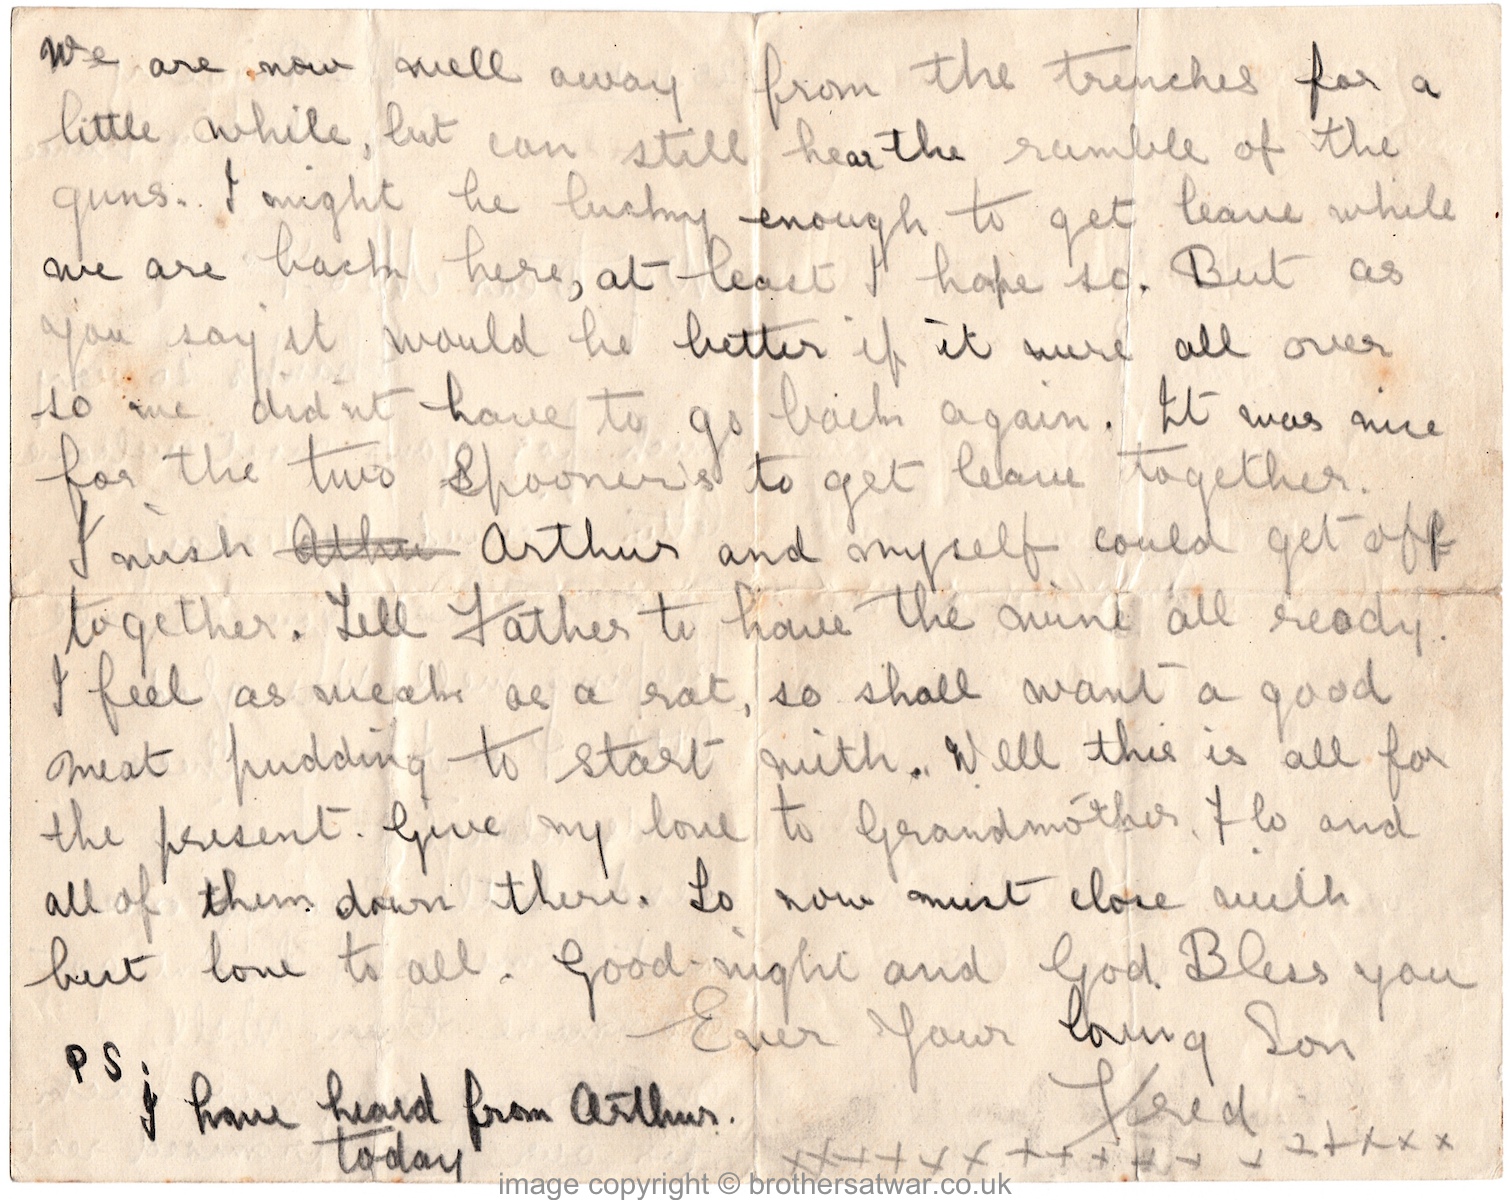 We are now well away from the trenches for a
little while, but can still hear the rumble of the
guns.. I might be lucky enough to get leave while
we are back here, at least I hope so. But as
you say it would be better if it were all over
so we didn't have to go back again. It was nice
for the two Spooner's to get leave together.
I wish Athu Arthur and myself could get off
together. Tell Father to have the wine all ready.
I feel as weak as a rat, so shall want a good
meat pudding to start with.. Well this is all for
the present. Give my love to Grandmother, Flo and
all of them down there. So now must close with
but love to all. Good-night and God Bless you
Ever Your loving Son
Fred
x x x x x x x x x x x x x x x x x x
PS I have heard from Arthur.
today
image copyright © brothersatwar.co.uk